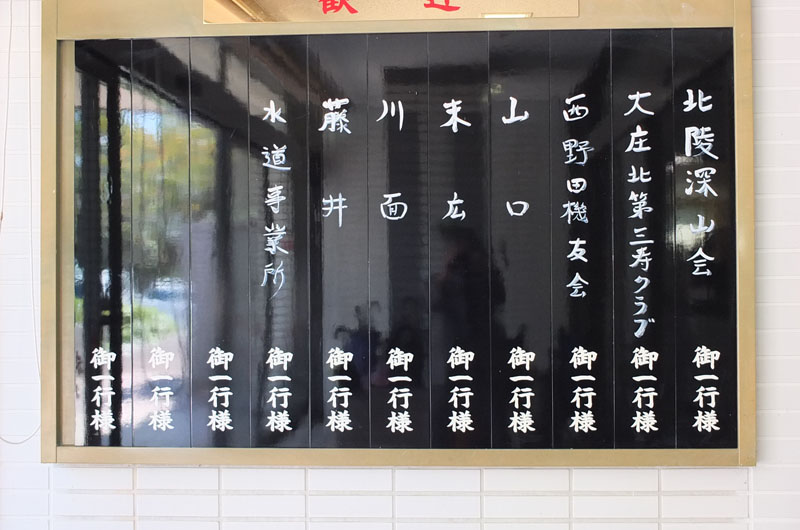 歓迎
北陵深山会 御一行様
大庄北第三寿クラブ 御一行様
西野田機友会 御一行様
山口 御一行様
末広 御一行様
川面 御一行様
藤井 御一行様
水道事業所 御一行様
御一行様
御一行様
御一行様